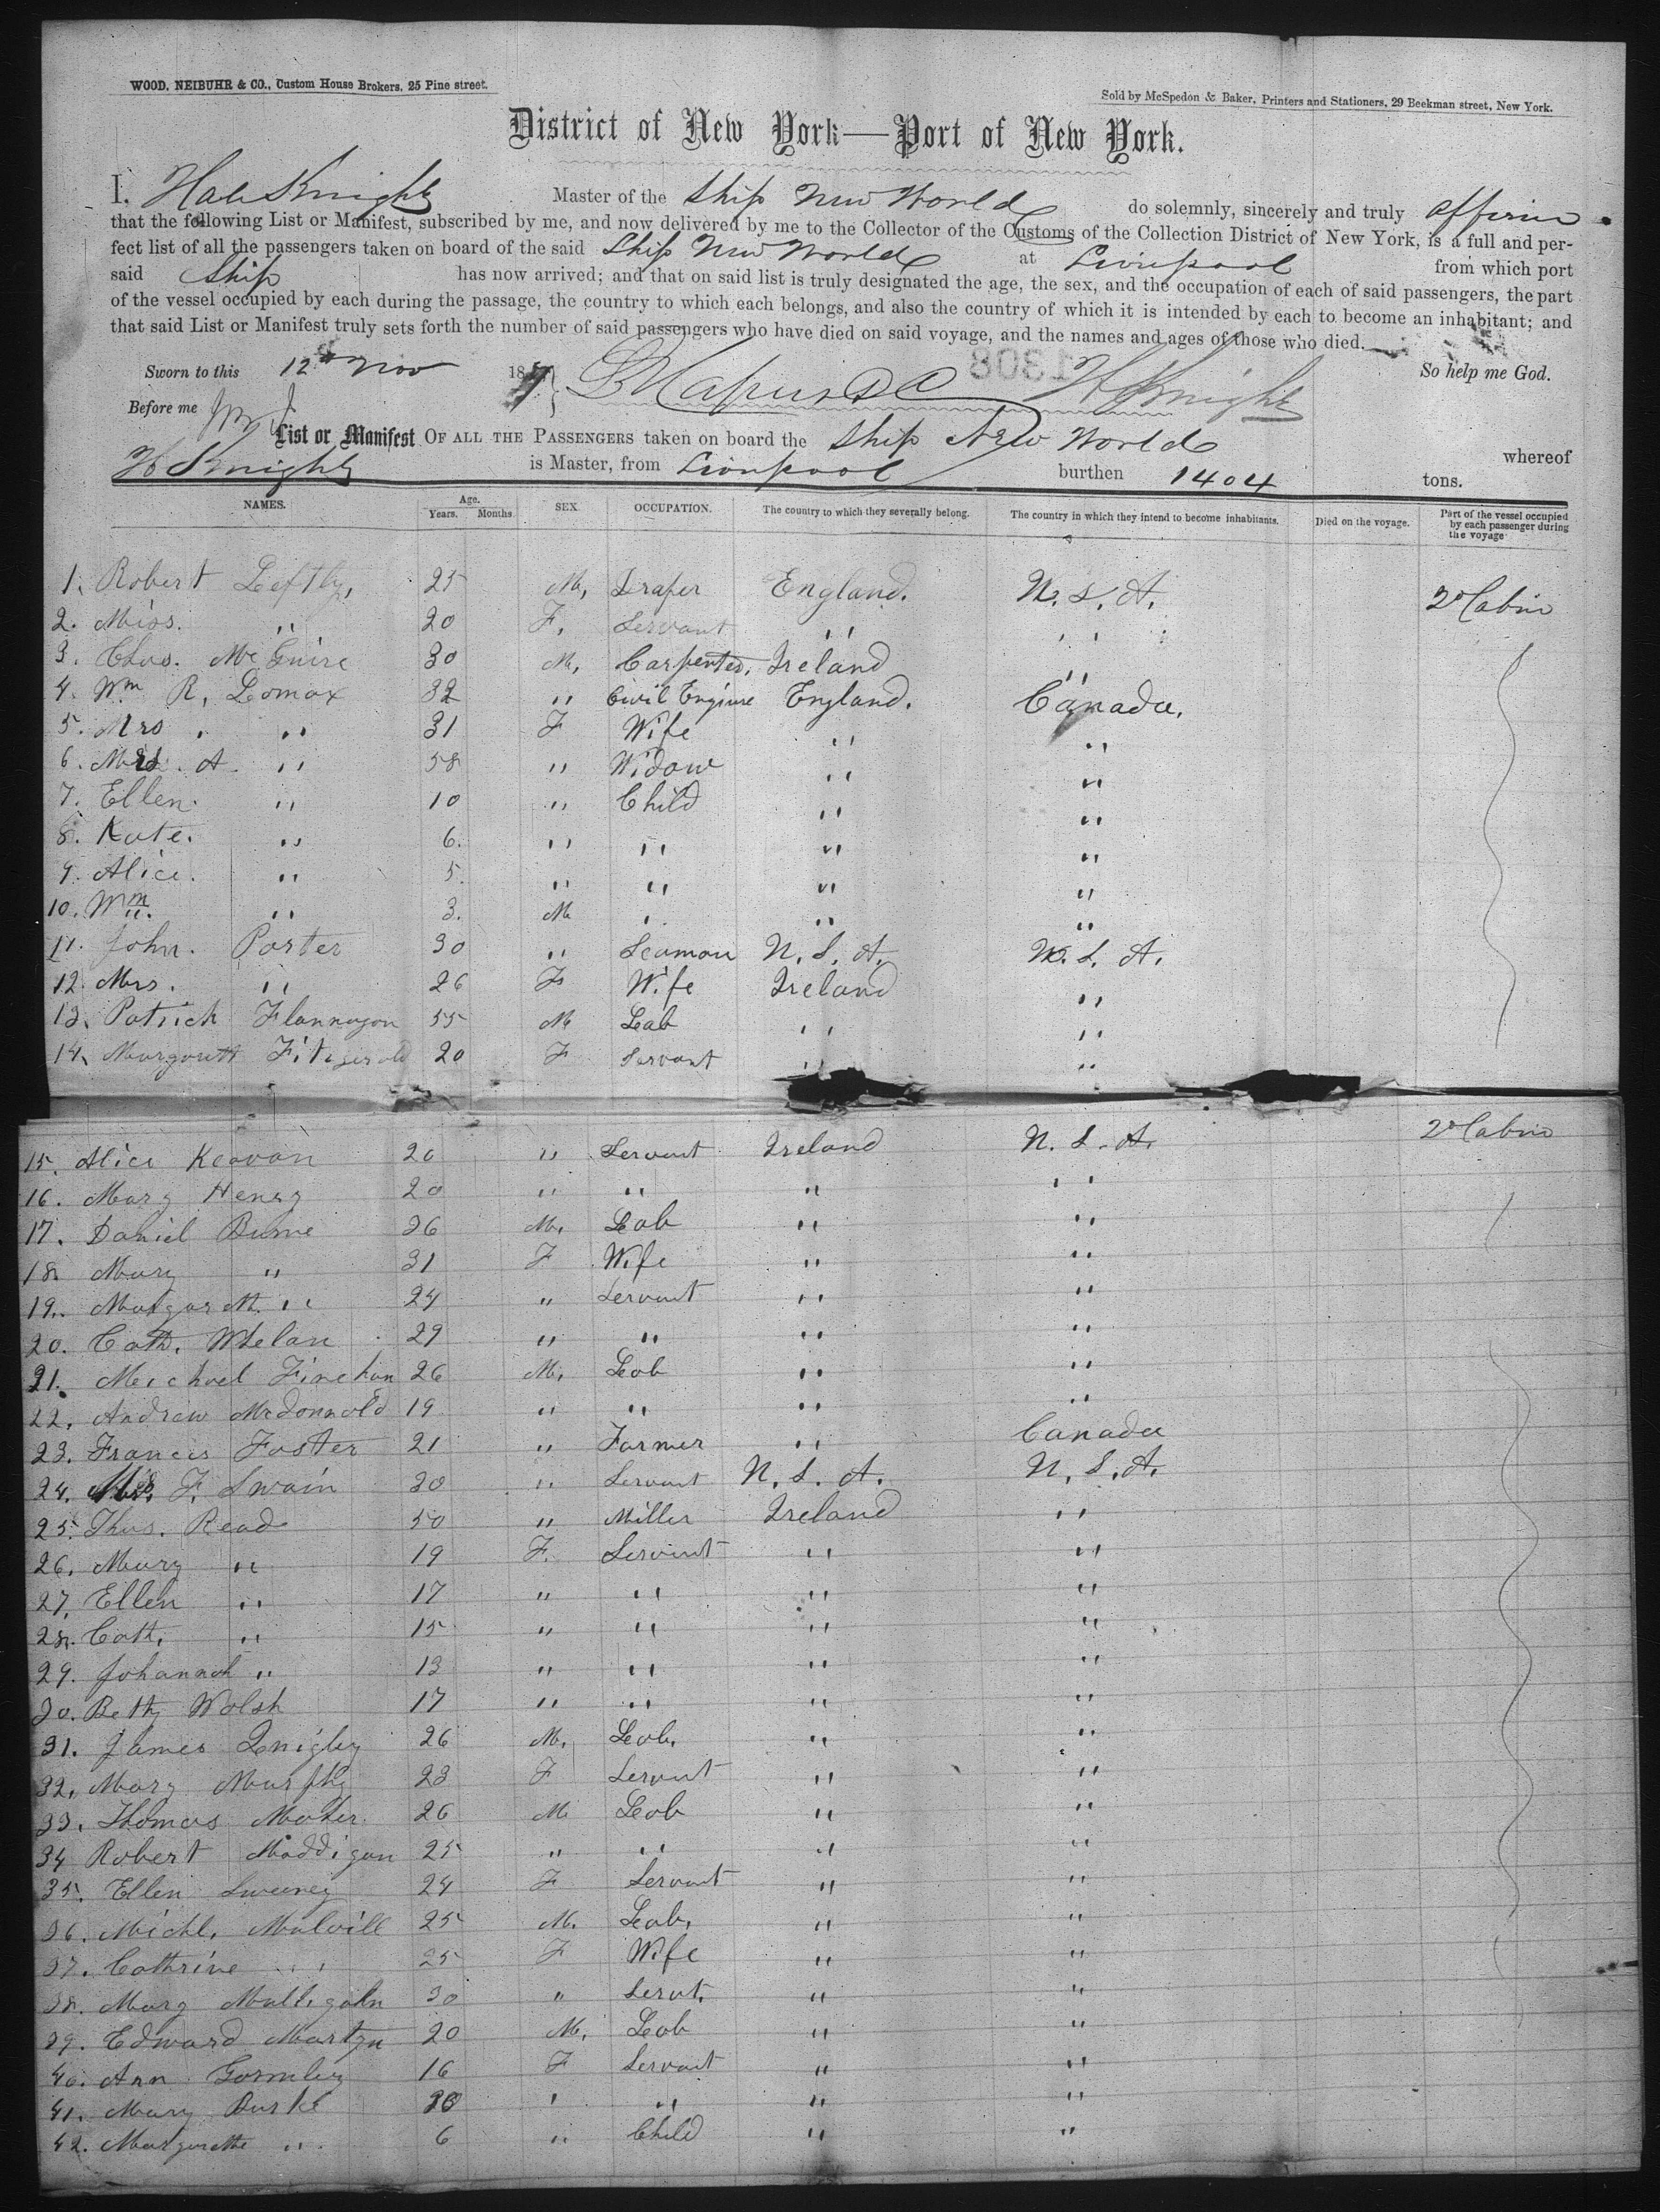 WOOD, NEIBUHR & CO., Custom House Brokers, 25 Pine street.
Sold by McSpedon & Baker, Printers and Stationers, 29 Beekman street, New York.
District of New York—Port of New York.
I, Hale Knight Master of the Ship New World do solemnly, sincerely and truly affirm
that the following List or Manifest, subscribed by me, and now delivered by me to the Collector of the Customs of the Collection District of New York, is a full and per-
fect list of all the passengers taken on board of the said Ship New World at Liverpool from which port
said Ship has now arrived; and that on said list is truly designated the age, the sex, and the occupation of each of said passengers, the part
of the vessel occupied by each during the passage, the country to which each belongs, and also the country of which it is intended by each to become an inhabitant; and
that said List or Manifest truly sets forth the number of said passengers who have died on said voyage, and the names and ages of those who died.
Sworn to this 12th Nov 1857 1308 H Knight So help me God.
Before me
List or Manifest OF ALL THE PASSENGERS taken on board the Ship New World whereof
H Knight is Master, from Liverpool burthen 1404 tons.
NAMES. Age. Years. Months SEX OCCUPATION. The country to which they severally belong. The country in which they intend to become inhabitants. Died on the voyage. Part of the vessel occupied by each passenger during the voyage
1. Robert Leftly, 25 M, Draper England. U. S. A. 2d Cabin
2. Miss. " 20 F, Servant " "
3. Chas. McGuire 30 M, Carpenter, Ireland "
4. Wm R, Lomax 32 " Civil Enginre England. Canada.
5. Mrs. " 31 F Wife " "
6. Mrs. A. " 58 " Widow " "
7. Ellen. " 10 " Child " "
8. Kate. " 6. " " " "
9. Alice. " 5. " " " "
10. Wm. " 3. M " " "
11. John. Porter 30 " Seaman U. S. A. U. S. A.
12. Mrs. " 26 F Wife Ireland "
13. Patrick Flannagan 55 M Lab " "
14. Margarett Fitzgerald 20 F Servant " "
15. Alice Keavan 20 " Servant Ireland U. S. A. 2d Cabin
16. Mary Heney 20 " " " "
17. Daniel Burne 26 M. Lab " "
18. Mary " 31 F Wife " "
19. Margarett. " 24 " Servant " "
20. Cath. Whelan 29 " " " "
21. Meichael Finehan 26 M. Lab " "
22. Andrew McDonnold 19 " " " "
23. Francis Foster 21 " Farmer " Canada
24. F. Swain 30 " Servant U. S. A. U. S. A.
25. Thos. Read 50 " Miller Ireland "
26. Mary " 19 F. Servant " "
27. Ellen " 17 " " " "
28. Cath. " 15 " " " "
29. Johannah " 13 " " " "
30. Betty Walsh 17 " " " "
31. James Quigley 26 M. Lab. " "
32. Mary Murphy 23 F Servant " "
33. Thomas Maher. 26 M Lab " "
34 Robert Maddigan 25 " " " "
35. Ellen Sweeney 24 F Servant " "
36. Michl. Mulvill 25 M. Lab. " "
37. Cathrine " 25 F Wife " "
38. Mary Mulligahn 30 " Servt. " "
39. Edward Martyn 20 M. Lab " "
40. Ann Gormley 16 F Servant " "
41. Mary Burke " " " "
42. Margarette " 6 " Child " "